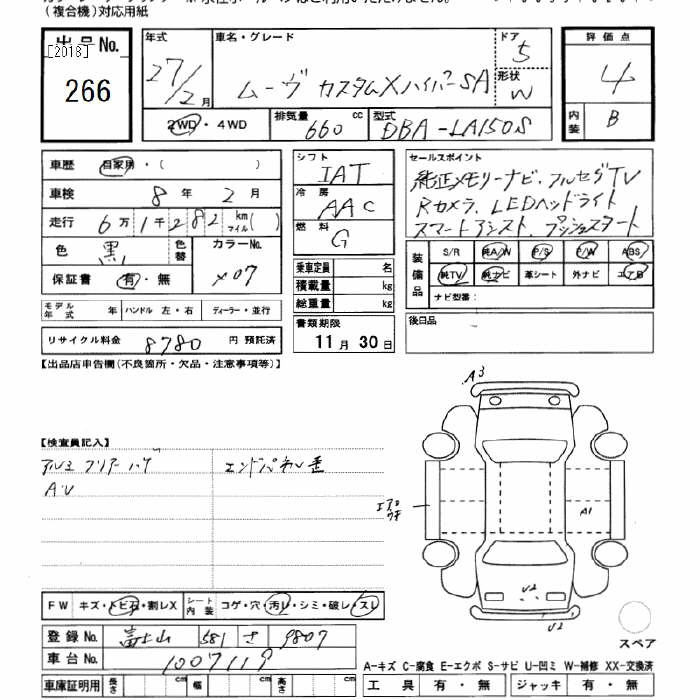 (複合機)対応用紙
出品No.
[2018]
266
年式
27/2月
車名・グレード
ムーヴ カスタムXハイパーSA
ドア
5
形状
W
評価点
4
内装
B
2WD・4WD
排気量
660 cc
型式
DBA-LA150S
車歴 自家用・( )
車検 8年2月
走行 6万1千282 km マイル( )
色 黒
色替
カラーNo.
X07
保証書 有・無
モデル年式 年 ハンドル 左・右 ディーラー・並行
リサイクル料金 8780 円 預託済
シフト
IAT
冷房
AAC
燃料
G
乗車定員 名
積載量 kg
総重量 kg
書類期限
11月30日
セールスポイント
純正メモリーナビ、フルセグTV
Rカメラ、LEDヘッドライト
スマートアシスト、プッシュスタート
装備品
S/R 純A/W P/S P/W ABS
純TV 純ナビ 革シート 外ナビ エアB
ナビ型番:
後日品
【出品店申告欄(不良箇所・欠品・注意事項等)】
【検査員記入】
アルミ フリアーハゲ
エンドパネル歪
AU
A3
エアロ
ウキ
A1
U2
U2
FW キズ・トビ石・割レX シート内装 コゲ・穴・汚レ・シミ・破レ・スレ
登録No. 富士山 581 さ 9807
車台No. 1007119
車庫証明用 長さ cm 幅 cm 高さ cm
スペア
A-キズ C-腐食 E-エクボ S-サビ U-凹ミ W-補修 XX-交換済
工具 有・無 ジャッキ 有・無